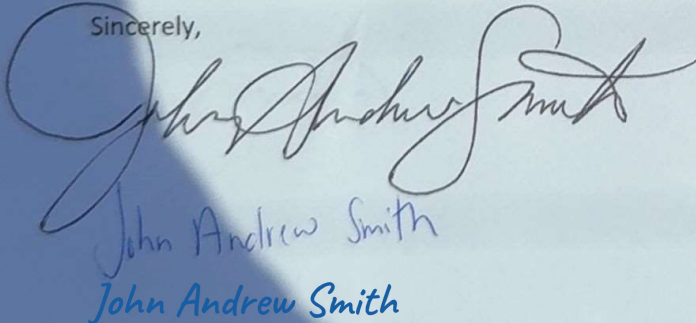 Sincerely,
John Andrew Smith
John Andrew Smith
John Andrew Smith